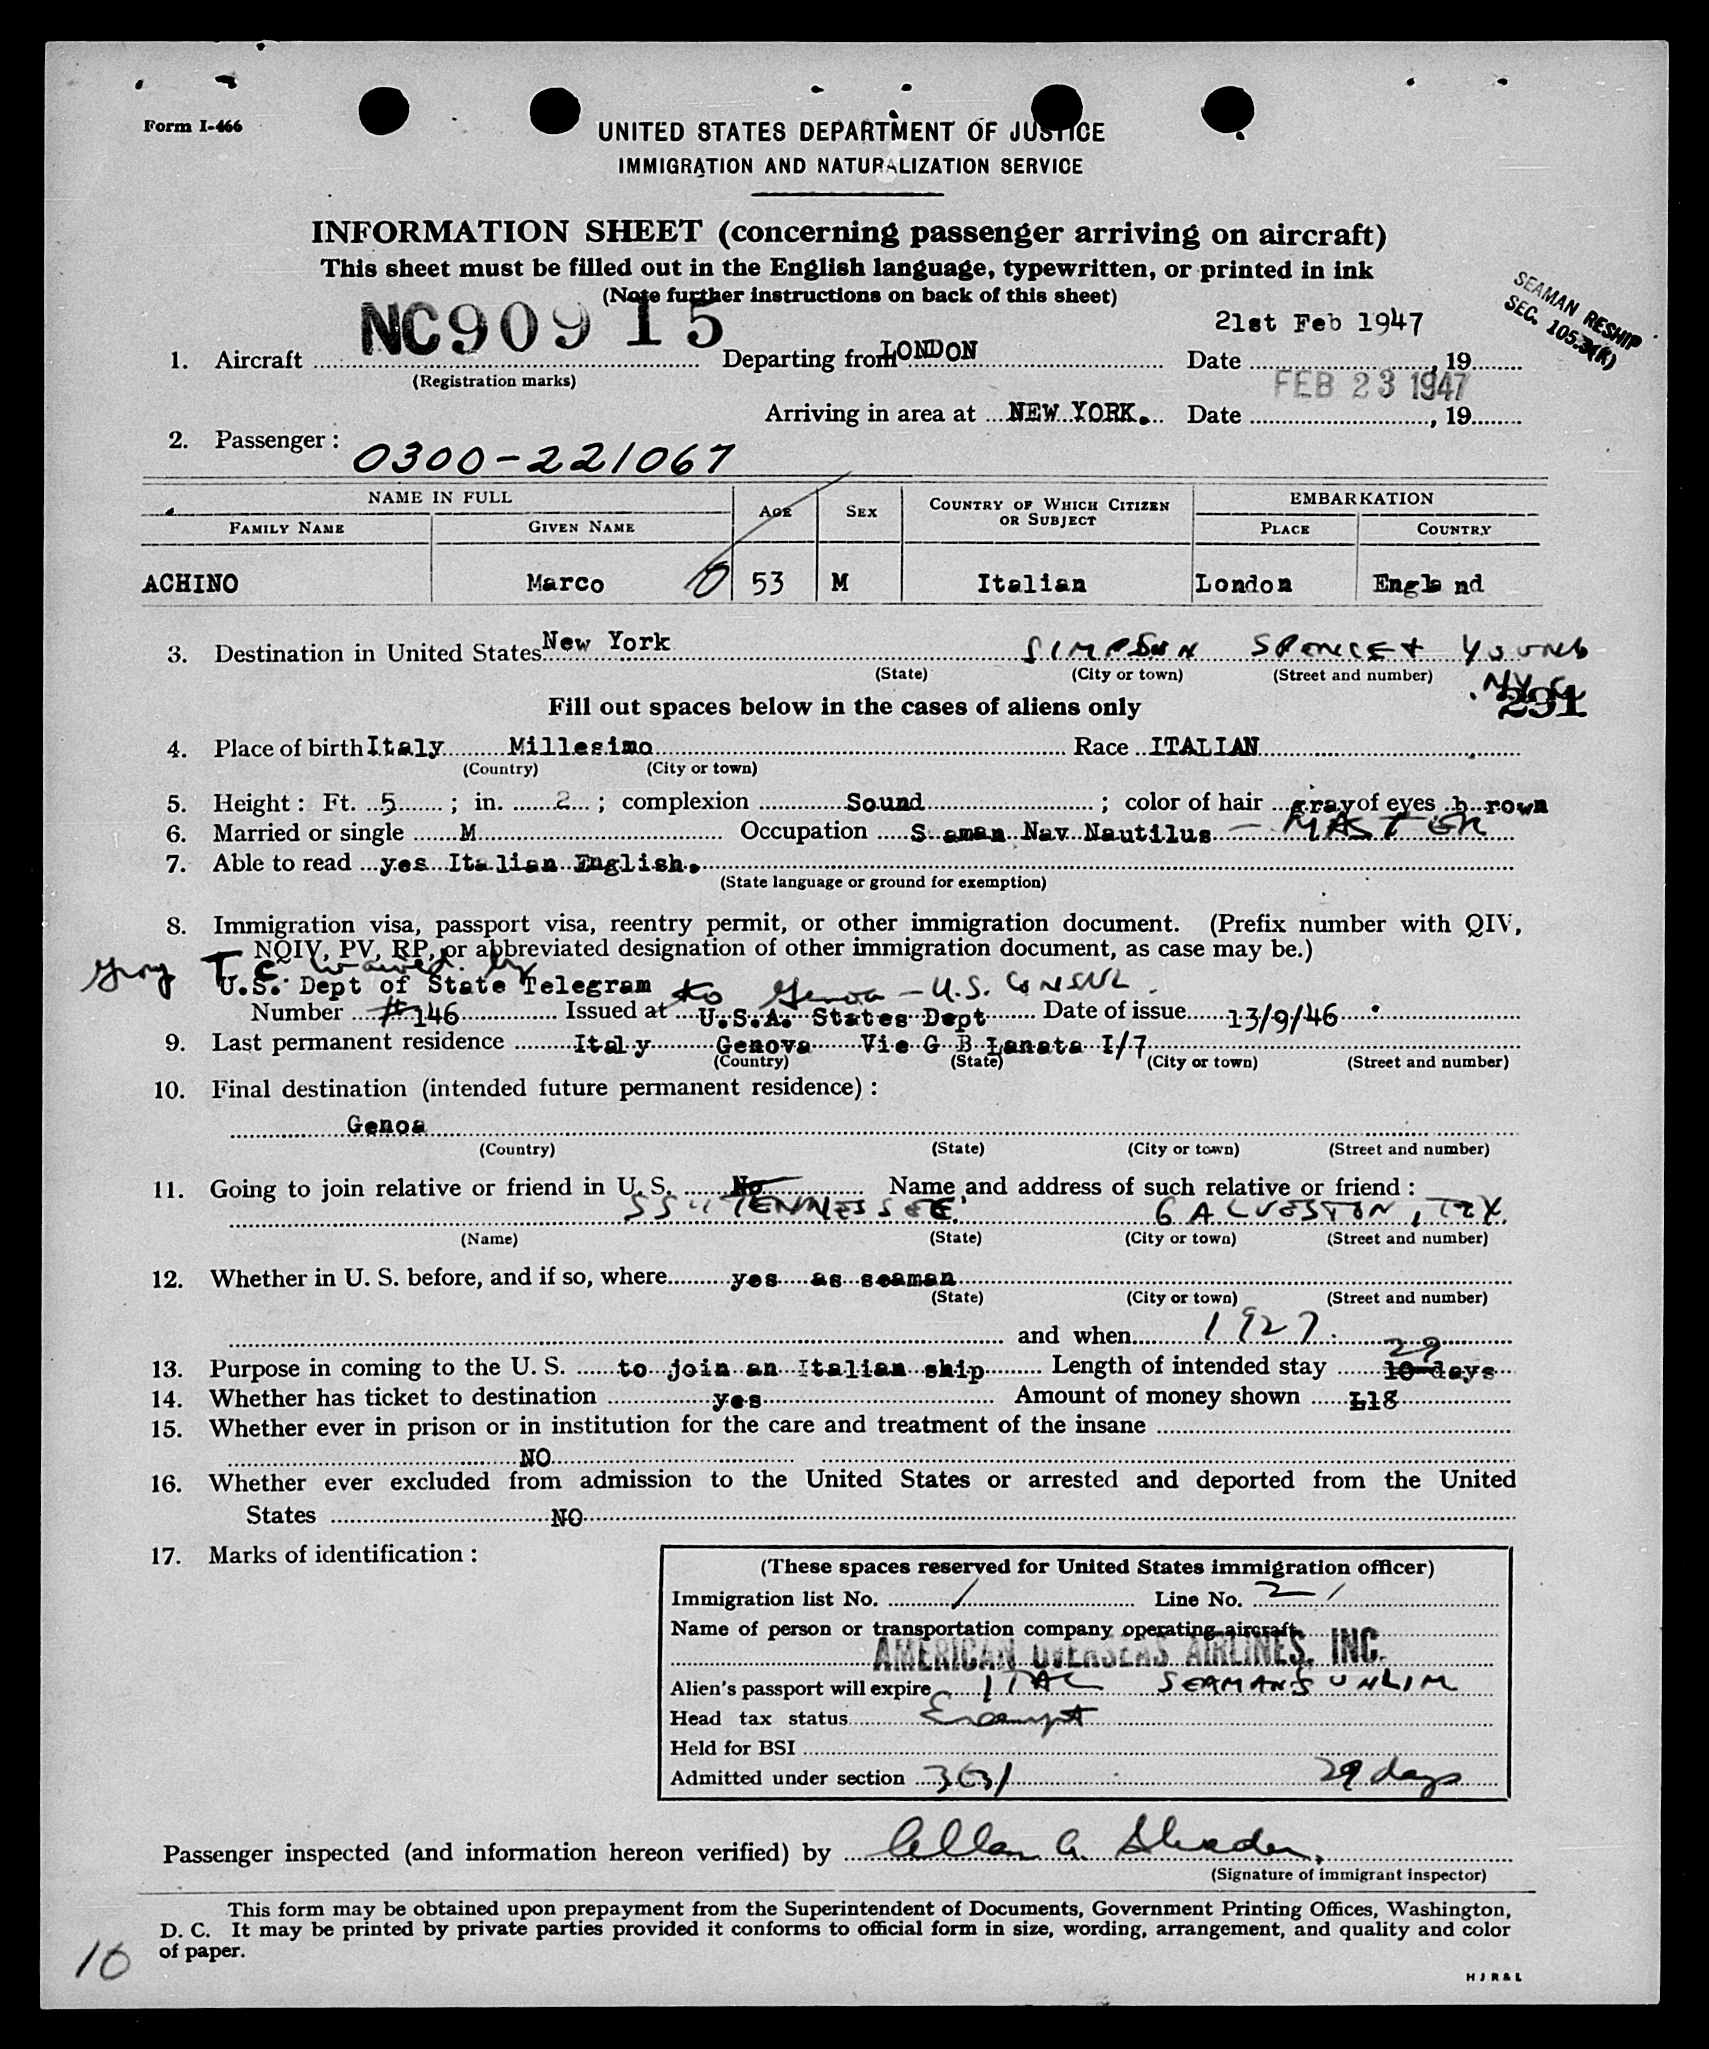 Form I-466
UNITED STATES DEPARTMENT OF JUSTICE
IMMIGRATION AND NATURALIZATION SERVICE
INFORMATION SHEET (concerning passenger arriving on aircraft)
This sheet must be filled out in the English language, typewritten, or printed in ink
(Note further instructions on back of this sheet)
SEAMAN RESHIP
SEC. 105.3(K)
NC90915
21st Feb 1947
1. Aircraft Departing from LONDON Date , 19
(Registration marks)
FEB 23 1947
Arriving in area at NEW YORK. Date , 19
2. Passenger :
0300-221067
NAME IN FULL AGE SEX COUNTRY OF WHICH CITIZEN OR SUBJECT EMBARKATION
FAMILY NAME GIVEN NAME PLACE COUNTRY
ACHINO Marco 53 M Italian London Engla nd
3. Destination in United States New York SIMPSON SPENCE + YOUNG
(State) (City or town) (Street and number)
N.Y.C.
291
Fill out spaces below in the cases of aliens only
4. Place of birth Italy Millesimo Race ITALIAN
(Country) (City or town)
5. Height : Ft. 5 ; in. 2 ; complexion Sound ; color of hair gray of eyes b rown
6. Married or single M Occupation S aman Nav Nautilus - MASTER
7. Able to read yes Italian English.
(State language or ground for exemption)
8. Immigration visa, passport visa, reentry permit, or other immigration document. (Prefix number with QIV,
NQIV, PV, RP, or abbreviated designation of other immigration document, as case may be.)
T.C. waived by
U.S. Dept of State Telegram to Genoa - U.S. CONSUL.
Number #146 Issued at U.S.A. States Dept Date of issue 13/9/46
9. Last permanent residence Italy Genova Vie G B Lanata I/7
(Country) (State) (City or town) (Street and number)
10. Final destination (intended future permanent residence) :
Genoa
(Country) (State) (City or town) (Street and number)
11. Going to join relative or friend in U. S. No Name and address of such relative or friend :
SS "TENNESSEE" GALVESTON, TEX.
(Name) (State) (City or town) (Street and number)
12. Whether in U. S. before, and if so, where yes as seaman
(State) (City or town) (Street and number)
and when 1927.
29
13. Purpose in coming to the U. S. to join an Italian ship Length of intended stay 10 days
14. Whether has ticket to destination yes Amount of money shown L18
15. Whether ever in prison or in institution for the care and treatment of the insane
NO
16. Whether ever excluded from admission to the United States or arrested and deported from the United
States NO
17. Marks of identification :
(These spaces reserved for United States immigration officer)
Immigration list No. 1 Line No. 2
Name of person or transportation company operating aircraft
AMERICAN OVERSEAS AIRLINES, INC.
Alien's passport will expire ITAL SEAMANS UNLIM
Head tax status Exempt
Held for BSI
Admitted under section 3(3) 29 days
Passenger inspected (and information hereon verified) by Allen G.
(Signature of immigrant inspector)
This form may be obtained upon prepayment from the Superintendent of Documents, Government Printing Offices, Washington,
D. C. It may be printed by private parties provided it conforms to official form in size, wording, arrangement, and quality and color
of paper.
10
H J R & L